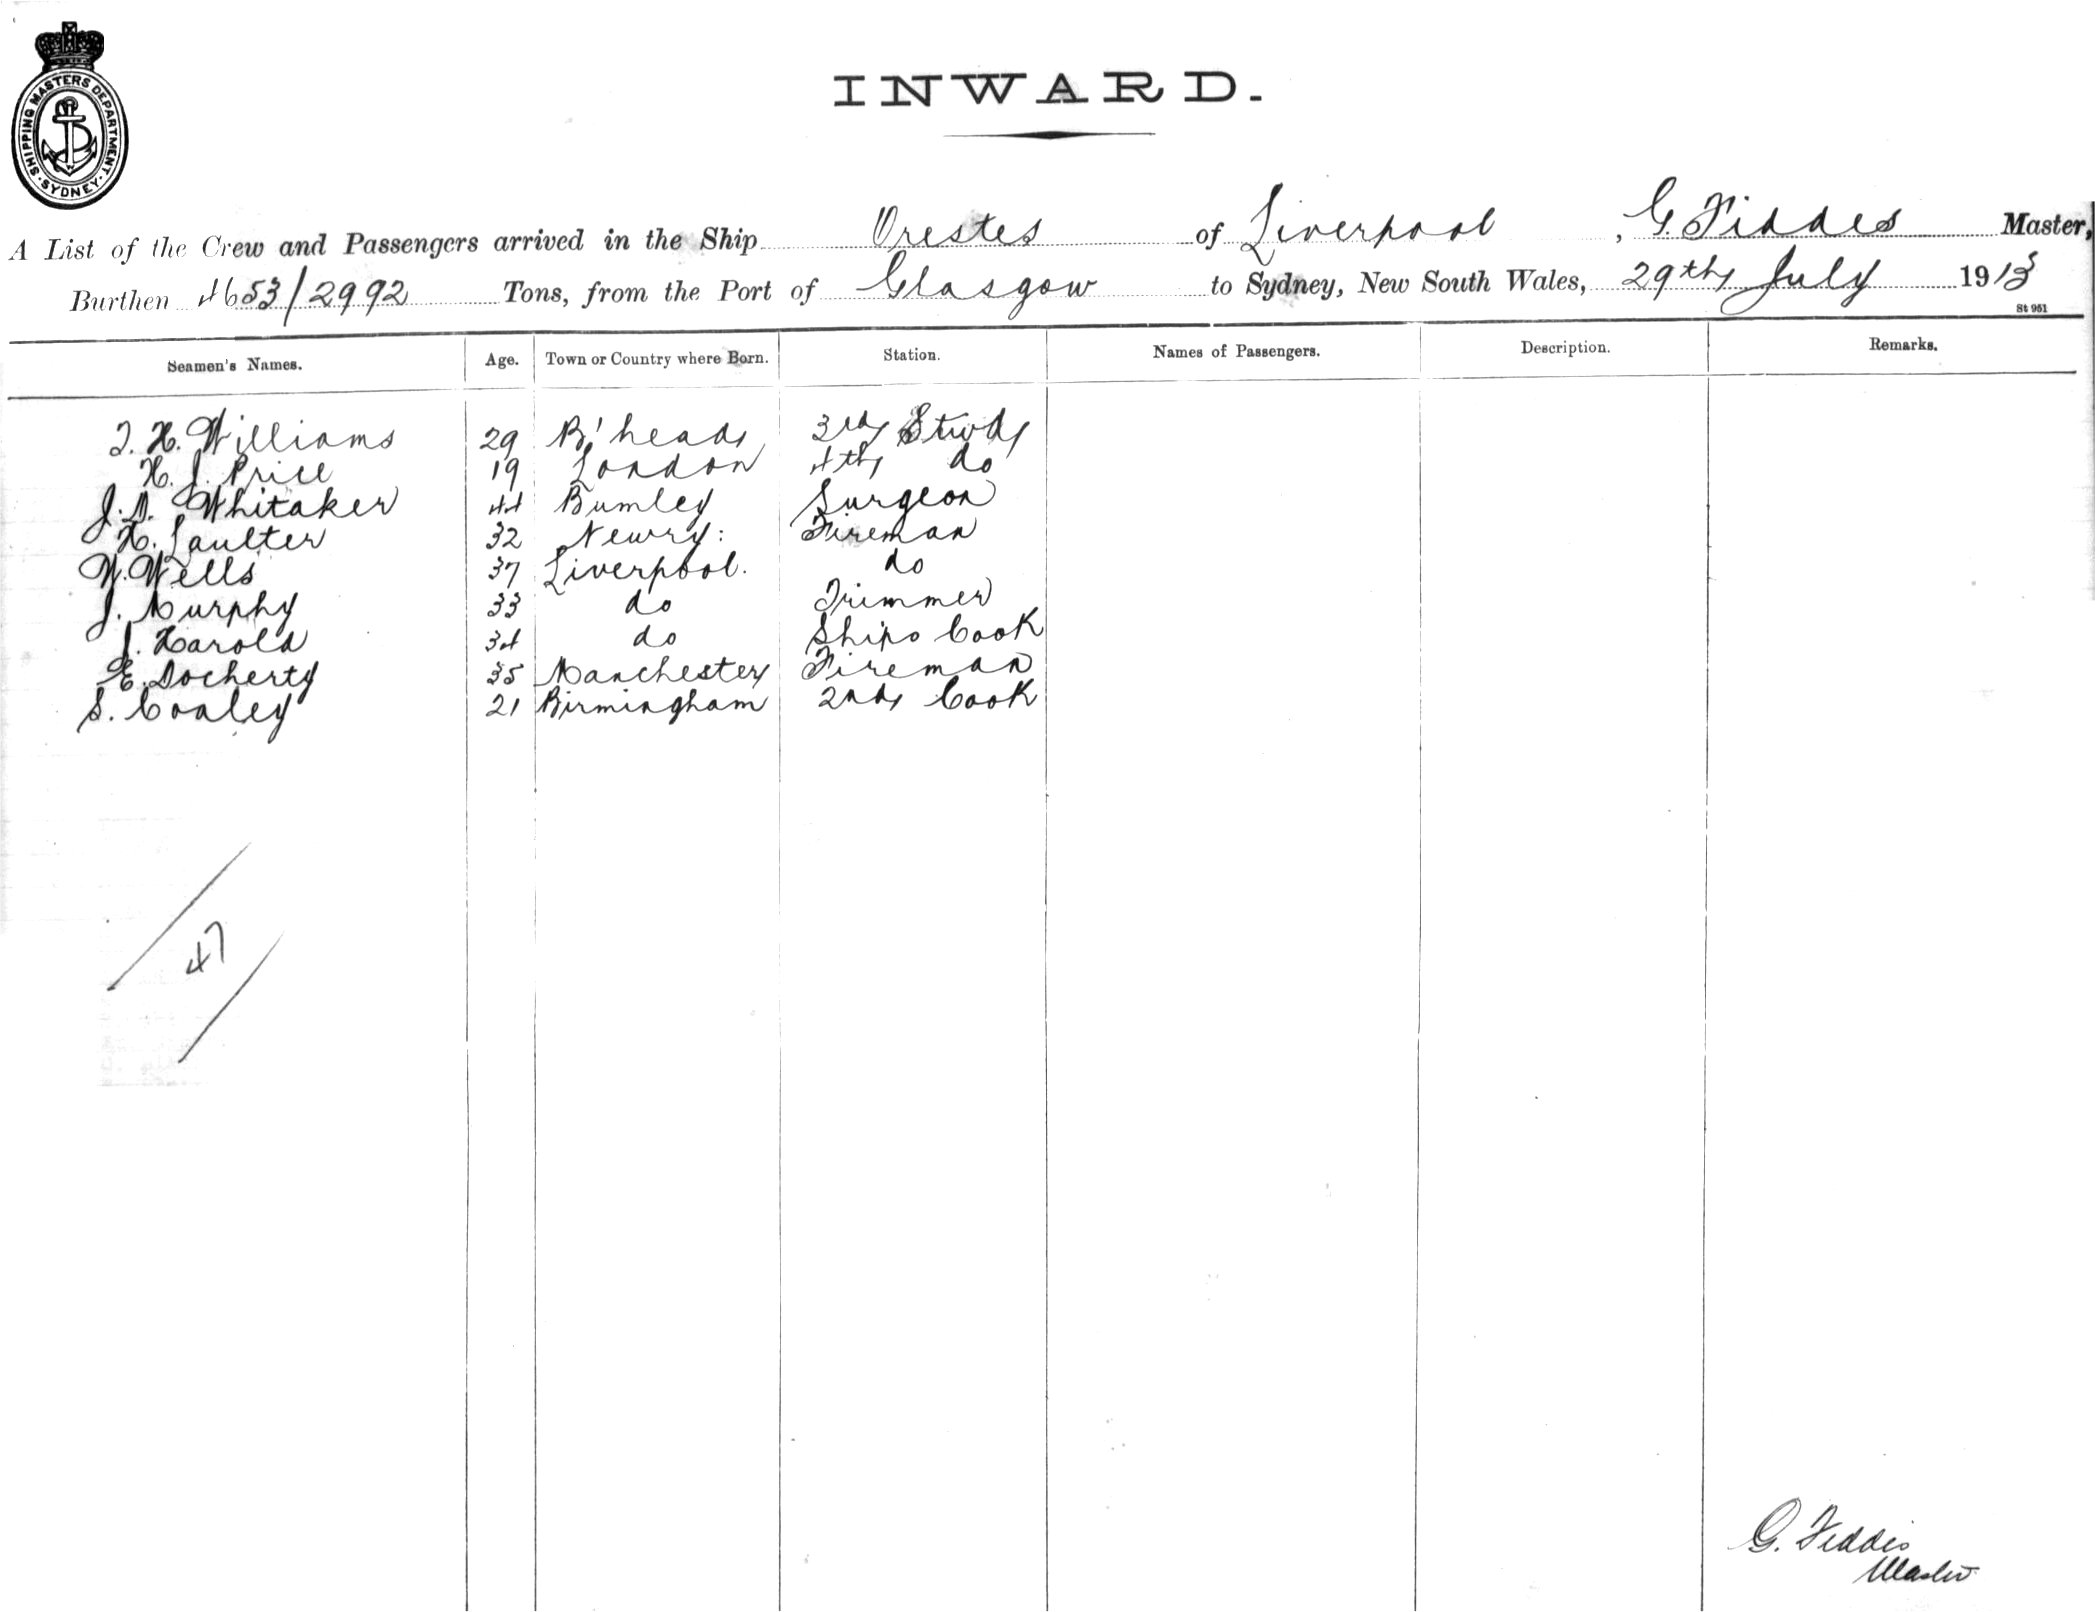 SHIPPING MASTERS DEPARTMENT
· SYDNEY ·
INWARD.
A List of the Crew and Passengers arrived in the Ship Orestes of Liverpool, G. Fiddes Master,
Burthen 4653/2992 Tons, from the Port of Glasgow to Sydney, New South Wales, 29th July 1913
St 951
Seamen's Names. Age. Town or Country where Born. Station. Names of Passengers. Description. Remarks.
J. H. Williams 29 B'head 3rd Stwd
H. J. Price 19 London 4th do
J. D. Whitaker 44 Burnley Surgeon
H. Saulter 32 Newry: Fireman
W. Wells 37 Liverpool. do
J. Murphy 33 do Trimmer
J. Harold 34 do Ships Cook
E. Docherty 35 Manchester Fireman
S. Cooley 21 Birmingham 2nd Cook
47
G. Fiddes
Master